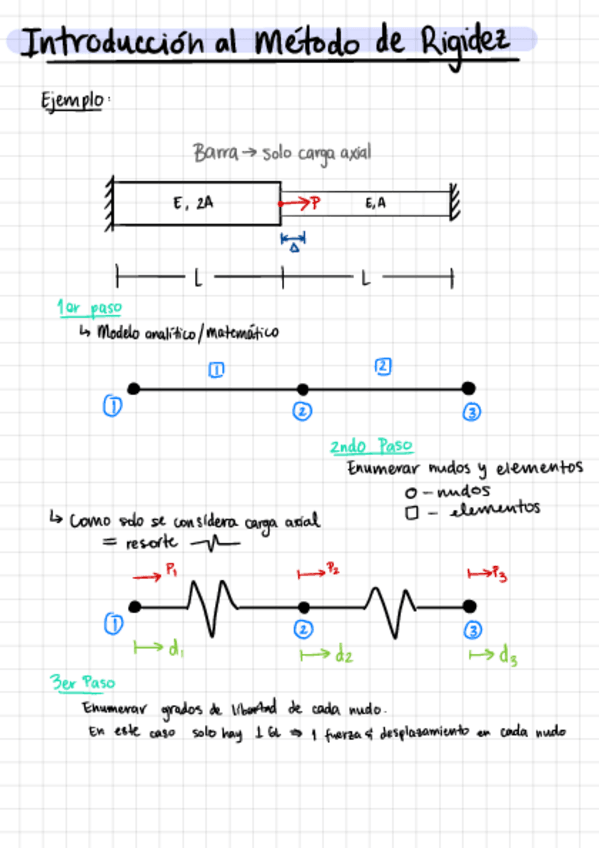 Introducción al Método de Rigidez
Ejemplo:
Barra → solo carga axial
E, 2A
P
E, A
Δ
L
L
1er paso
↳ Modelo analítico/matemático
1
2
1
2
3
2ndo Paso
Enumerar nudos y elementos
○ - nudos
□ - elementos
↳ Como solo se considera carga axial
= resorte
P1
P2
P3
1
2
3
d1
d2
d3
3er Paso
Enumerar grados de libertad de cada nudo.
En este caso solo hay 1 GL ⇒ 1 fuerza y desplazamiento en cada nudo